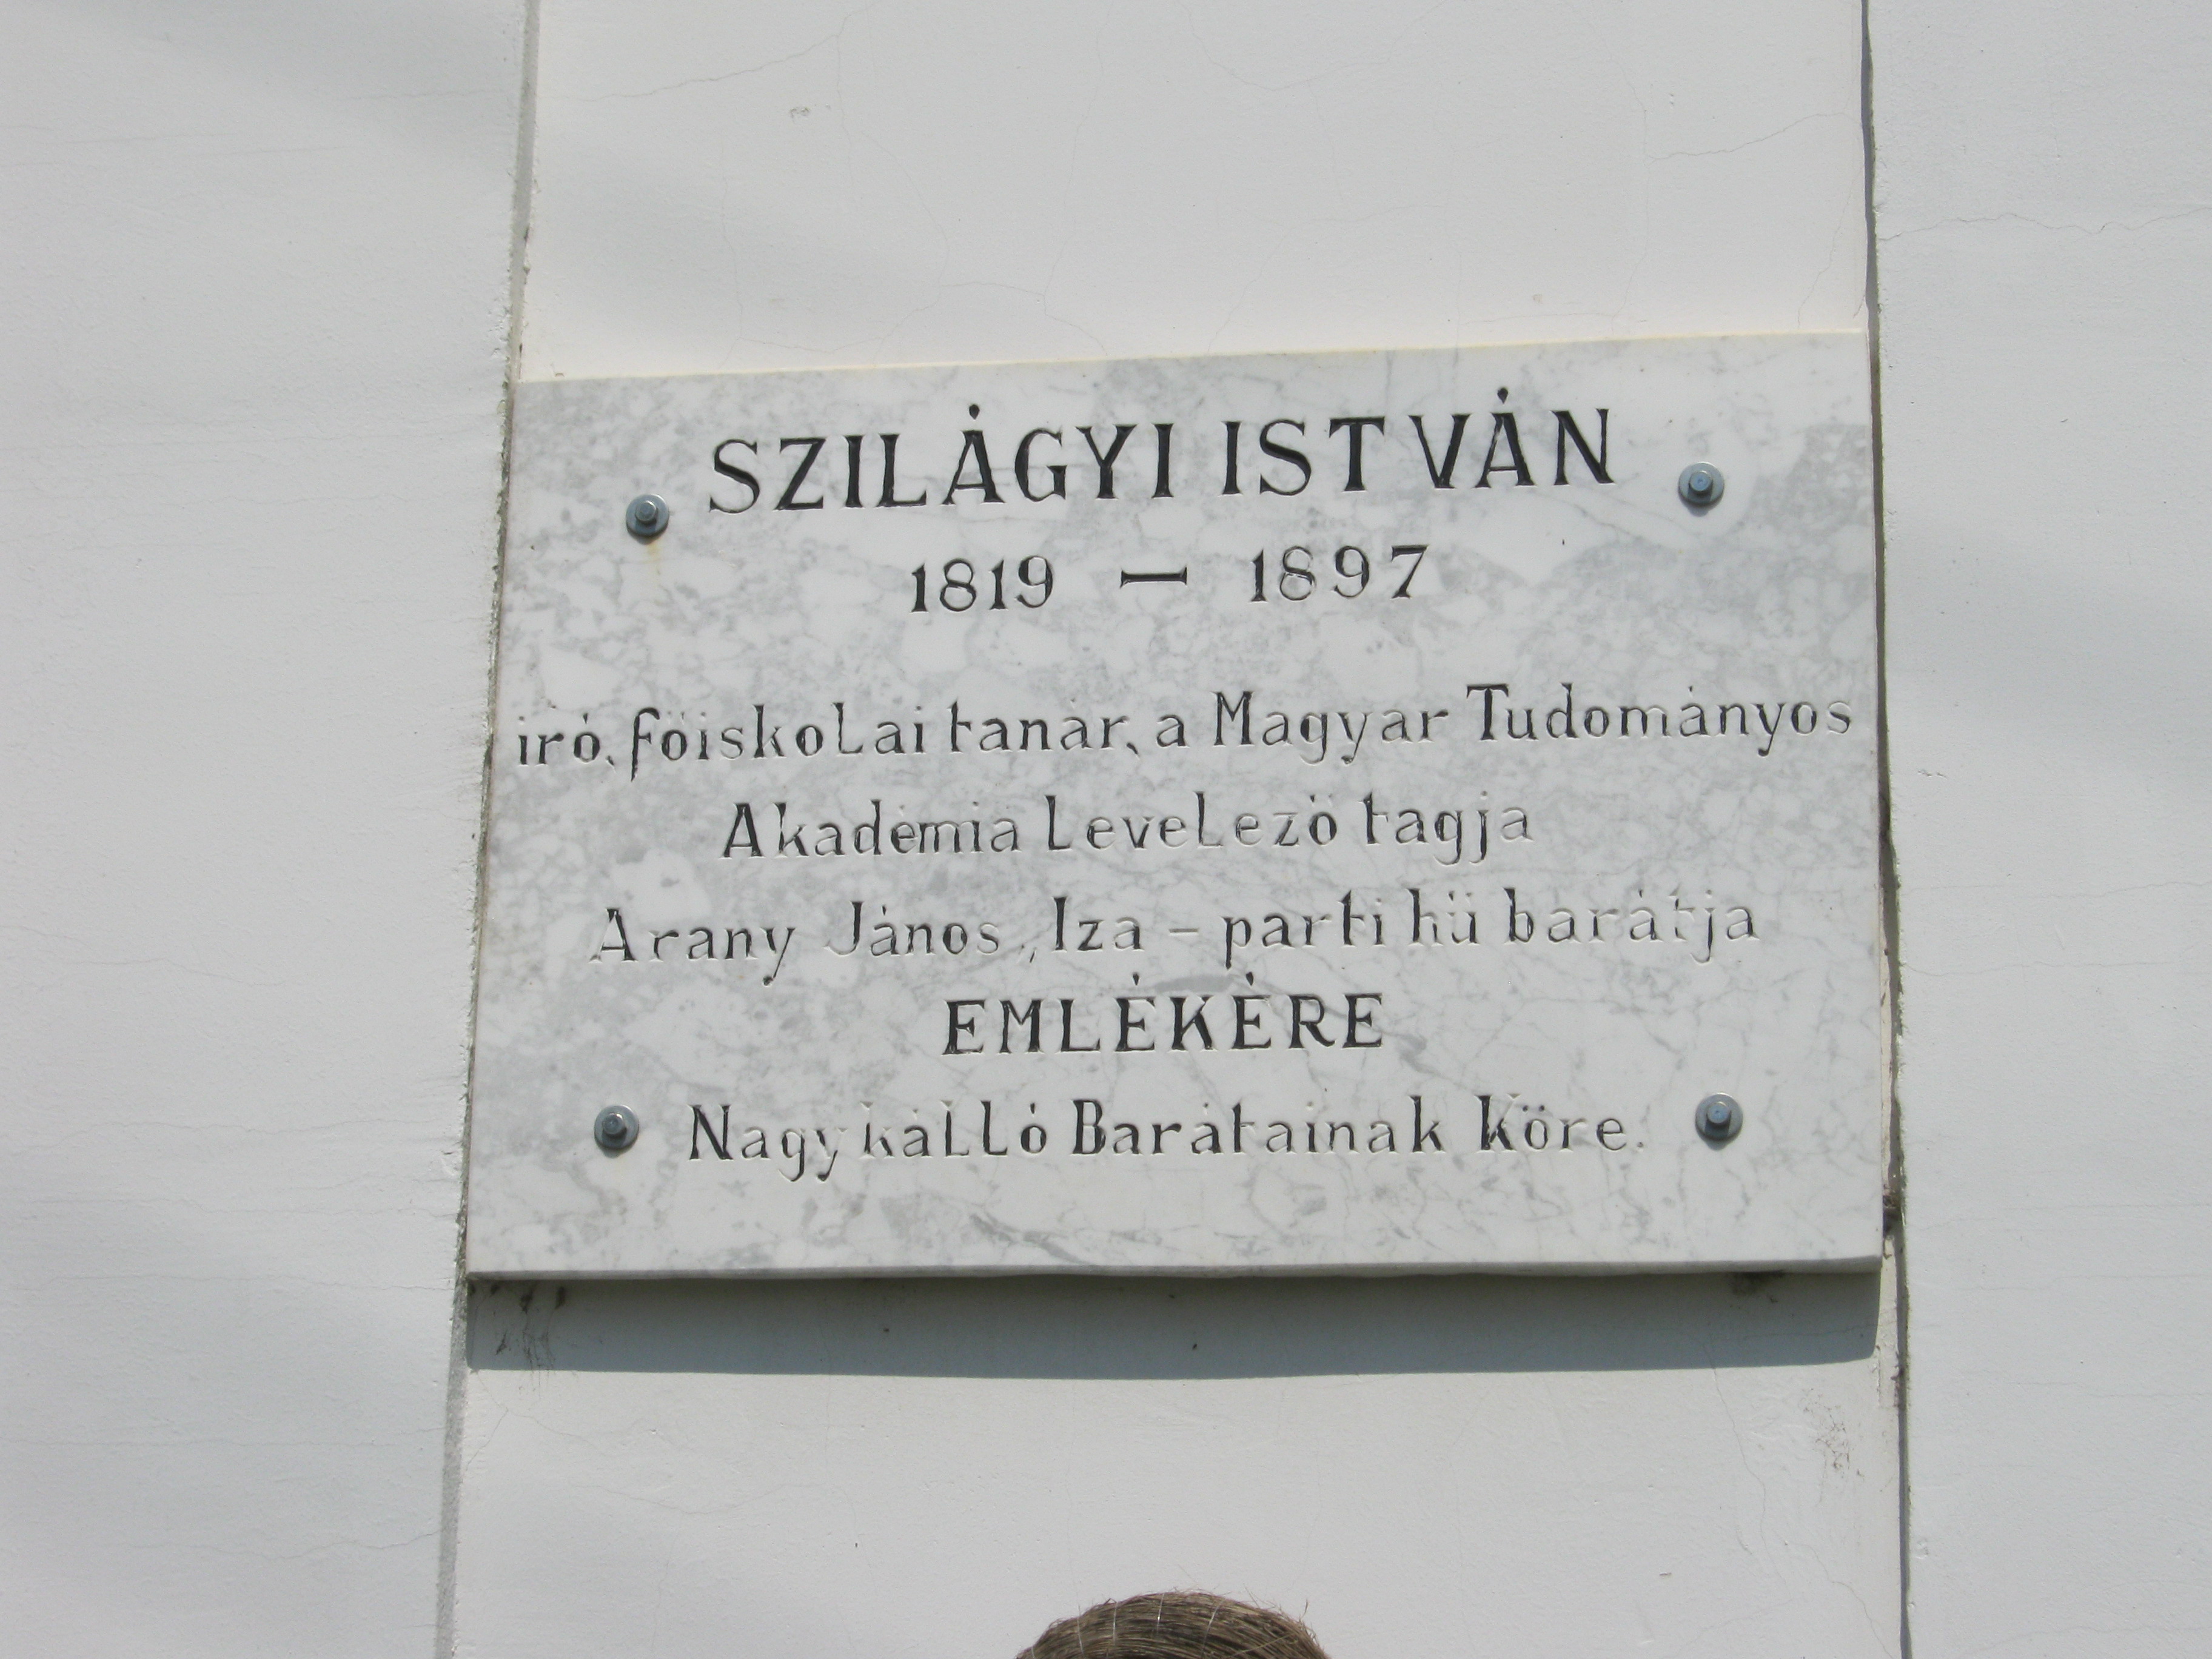 SZILÁGYI ISTVÁN
1819 – 1897
író, főiskolai tanár, a Magyar Tudományos
Akadémia Levelező tagja
Arany János „Iza - parti hű barátja
EMLÉKÉRE
Nagykálló Barátainak Köre.